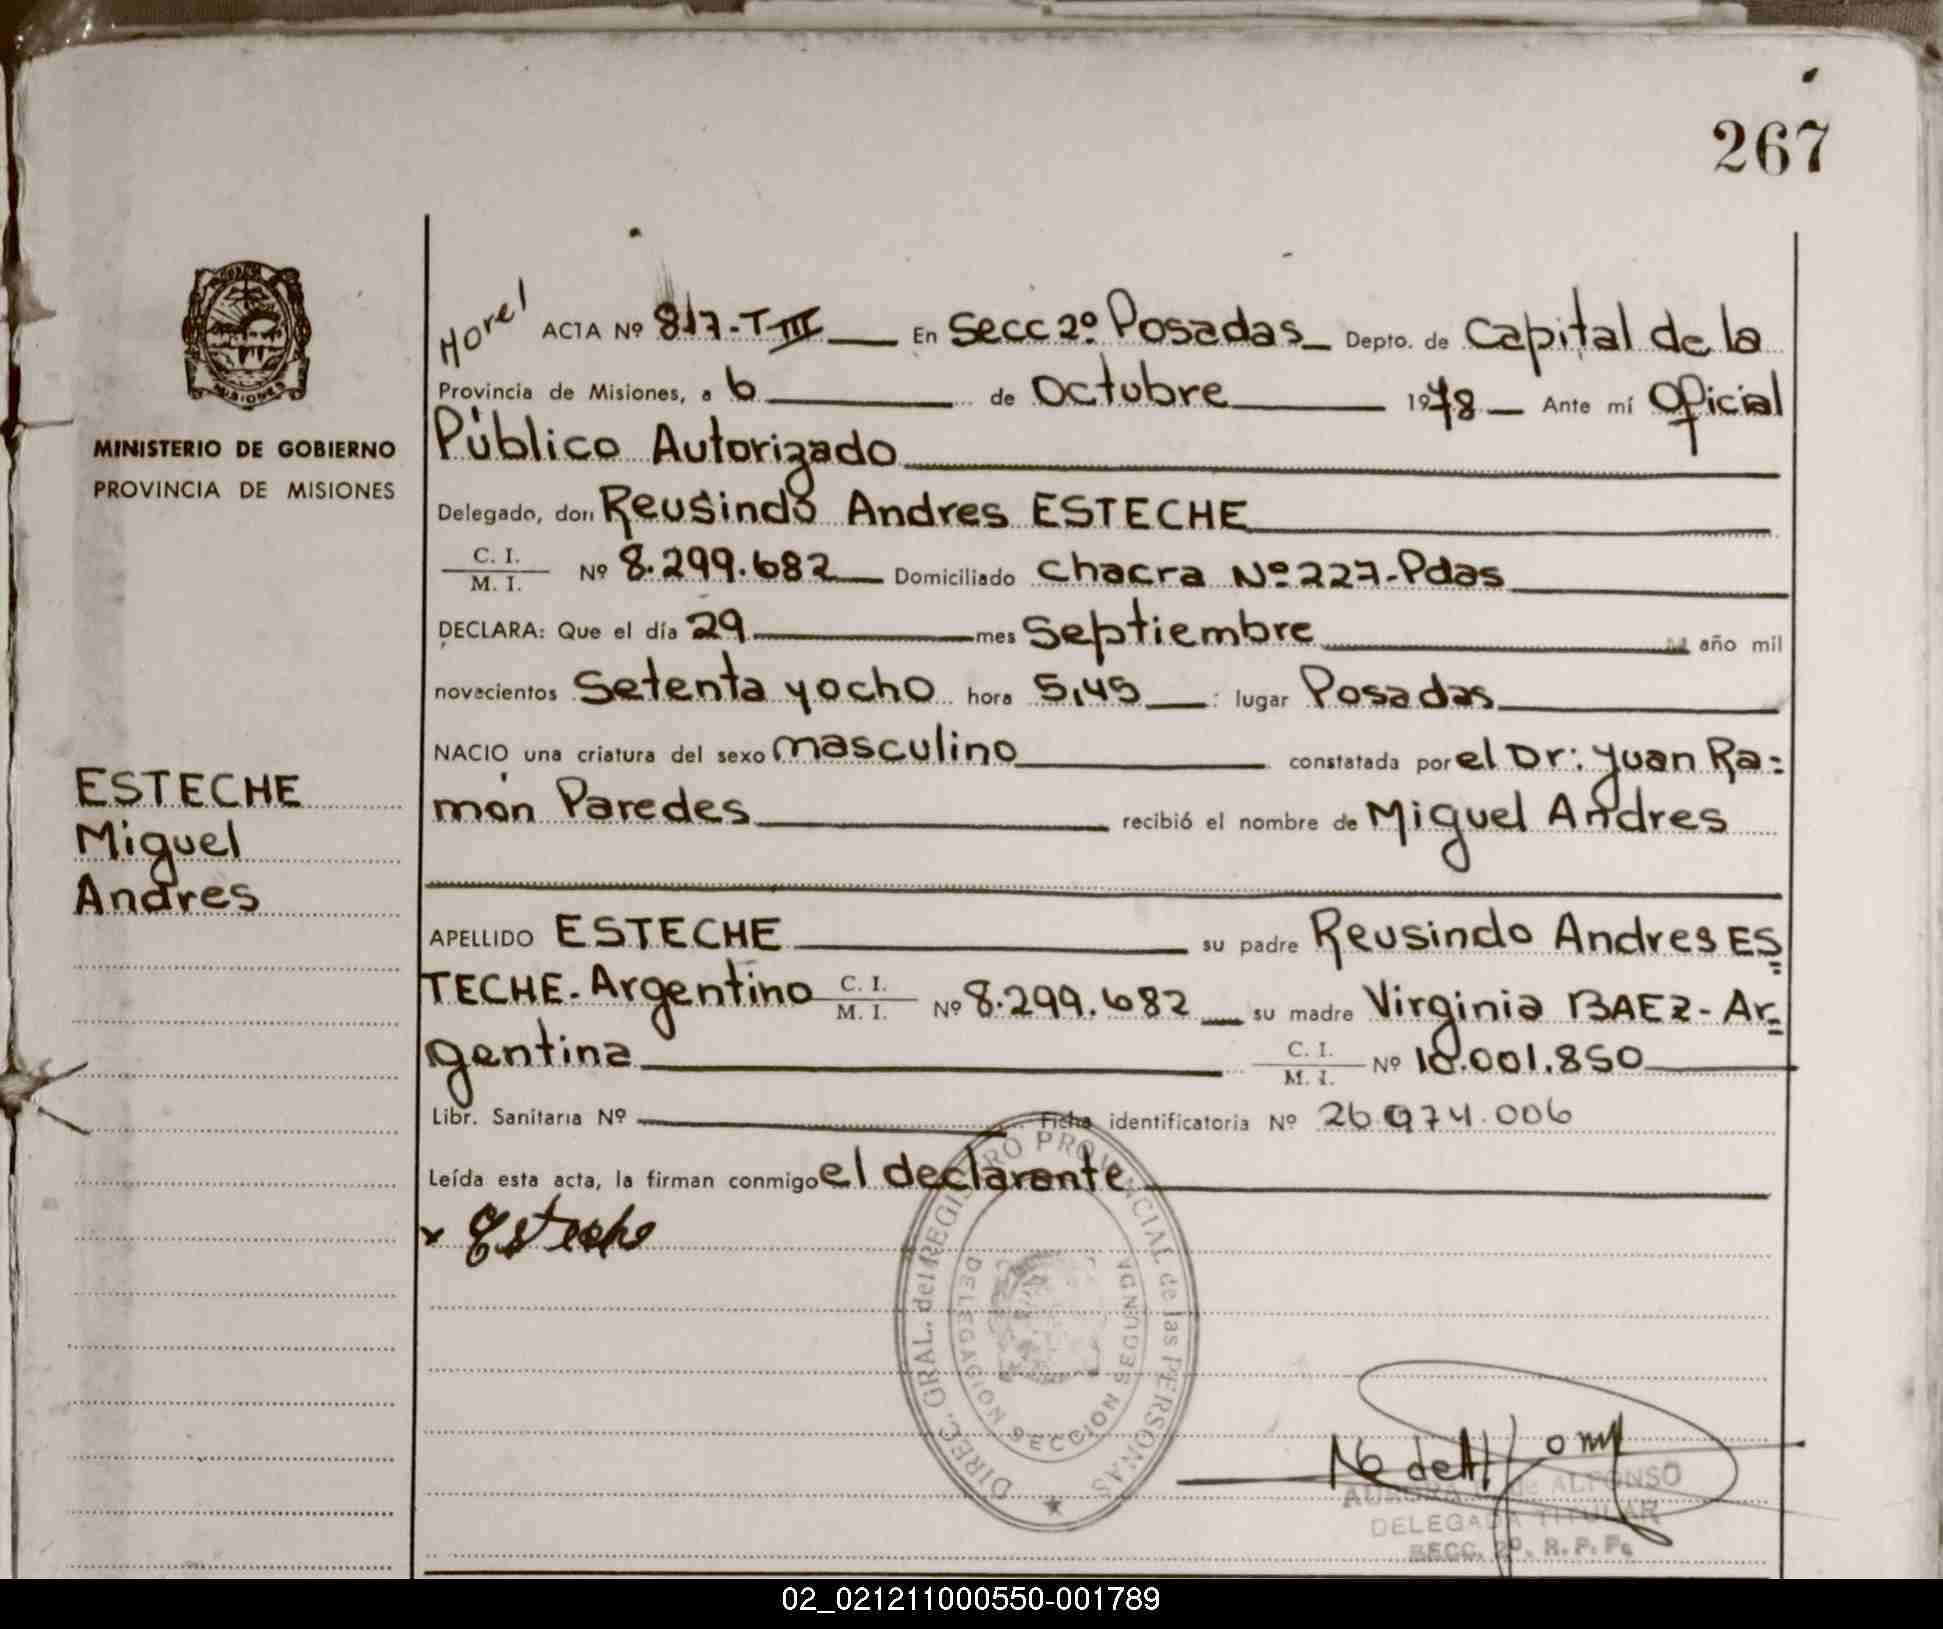 267
Horel ACTA Nº 817-T-III En Secc 2º Posadas Depto. de Capital de la
Provincia de Misiones, a 6 de Octubre 1978 Ante mí Oficial
Público Autorizado
MISIONES
MINISTERIO DE GOBIERNO
PROVINCIA DE MISIONES
Delegado, don Reusindo Andres ESTECHE
C. I.
M. I. Nº 8.299.682 Domiciliado chacra Nº 227-Pdas
DECLARA: Que el día 29 mes Septiembre año mil
novecientos Setenta y ocho hora 5,45 : lugar Posadas
NACIO una criatura del sexo masculino constatada por el Dr: Juan Ra=
món Paredes recibió el nombre de Miguel Andres
ESTECHE
Miguel
Andres
APELLIDO ESTECHE su padre Reusindo Andres ES=
TECHE-Argentino C. I. M. I. Nº 8.299.682 su madre Virginia BAEZ-Ar=
gentina C. I. M. I. Nº 10.001.850
Libr. Sanitaria Nº Ficha identificatoria Nº 26.974.006
Leída esta acta, la firman conmigo el declarante
x Esteche
DIREC. GRAL. del REGISTRO PROVINCIAL de las PERSONAS
DELEGACION SECCION SEGUNDA
de ALFONSO
DELEGADA TITULAR
SECC. 2º. R. P. Ps
02_021211000550-001789